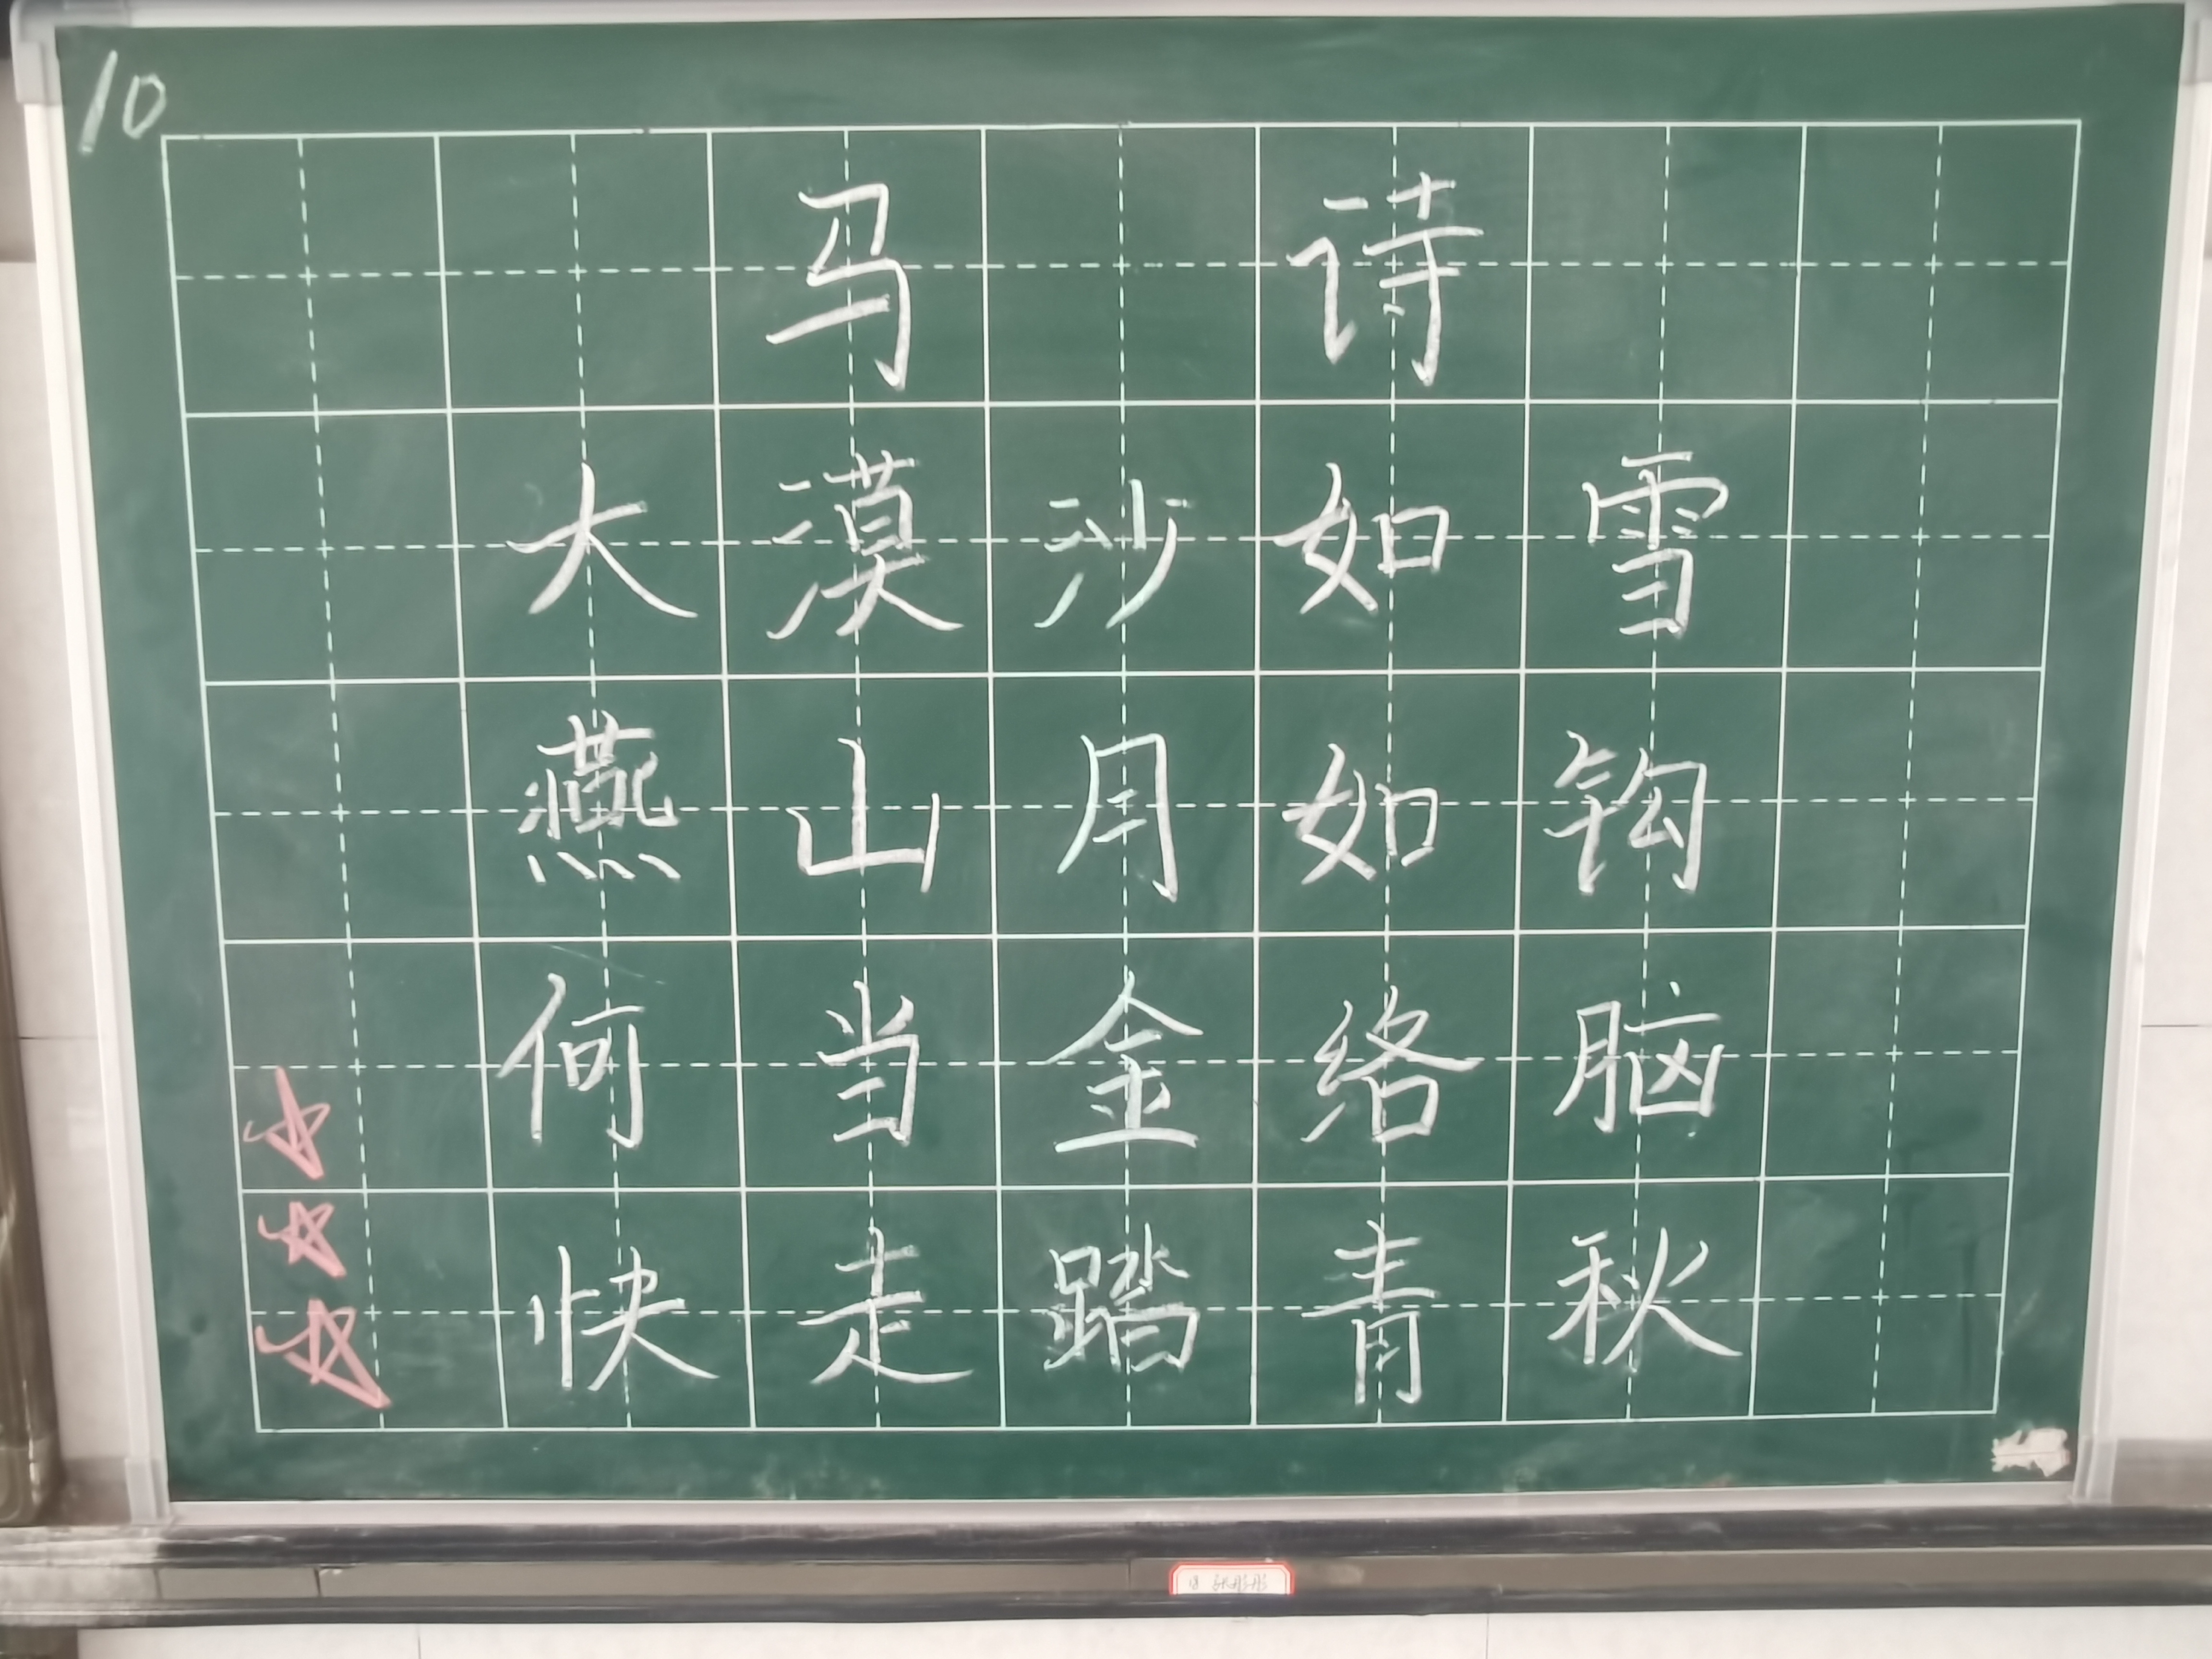 10
马诗
大漠沙如雪
燕山月如钩
何当金络脑
快走踏青秋